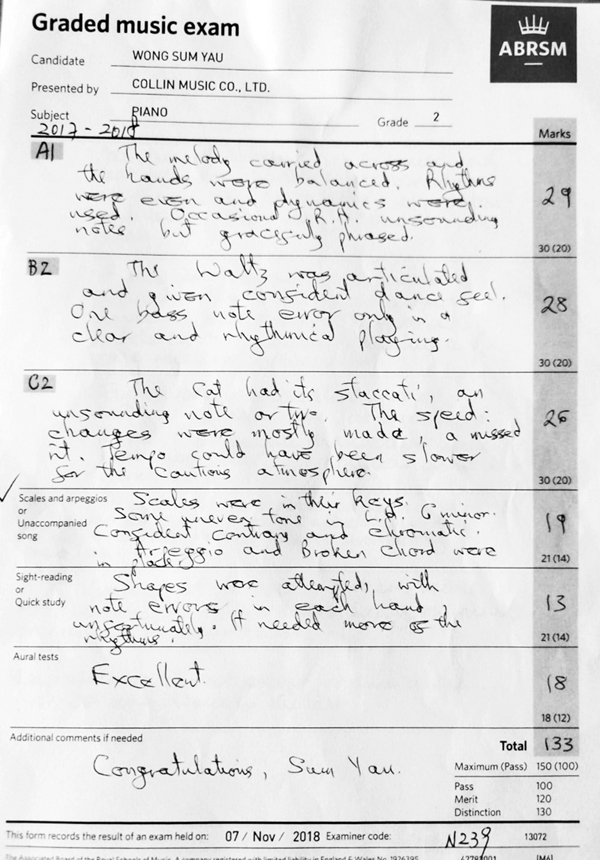 Graded music exam
ABRSM
Candidate WONG SUM YAU
Presented by COLLIN MUSIC CO., LTD.
Subject PIANO Grade 2
2017 - 2018 Marks
A1 The melody carried across and
the hands were balanced. Rhythms
were even and dynamics were
used. Occasional R.H. unsounding
notes but gracefully phrased.
29
30 (20)
B2 The Waltz was articulated
and given confident dance feel.
One bass note error only in a
clear and rhythmical playing.
28
30 (20)
C2 The Cat had its staccati, an
unsounding note or two. The speed
changes were mostly made, a missed
rit. Tempo could have been slower
for the cautious atmosphere.
26
30 (20)
Scales and arpeggios
or
Unaccompanied
song
Scales were in their keys.
Some uneven tone in L.H. C minor.
Confident contrary and chromatic.
Arpeggio and Broken Chord were
in place.
19
21 (14)
Sight-reading
or
Quick study
Shapes were attempted, with
note errors in each hand,
unfortunately. It needed more of the
rhythms.
13
21 (14)
Aural tests
Excellent.
18
18 (12)
Additional comments if needed
Congratulations, Sum Yau.
Total 133
Maximum (Pass) 150 (100)
Pass 100
Merit 120
Distinction 130
This form records the result of an exam held on: 07 / Nov / 2018 Examiner code: N239 13072